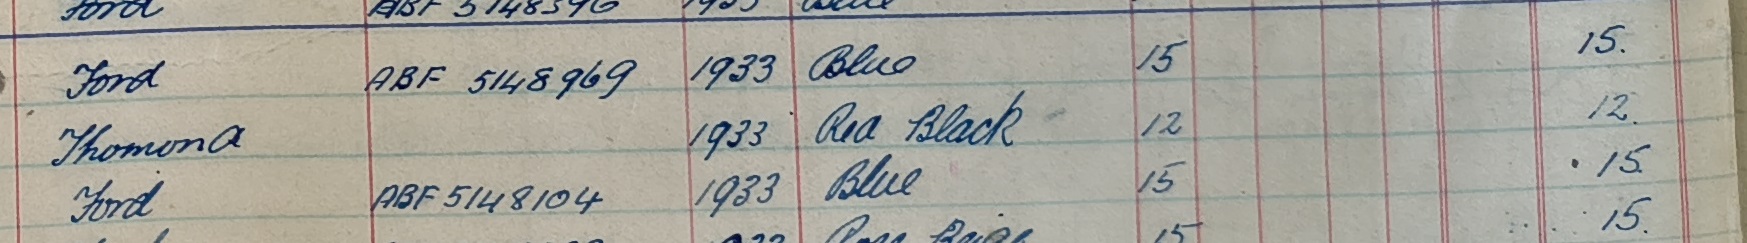 Ford ABF 5148396 1933 Blue
Ford ABF 5148969 1933 Blue 15 15.
Thomond 1933 Red Black 12 12.
Ford ABF 5148104 1933 Blue 15 15.
15 15.